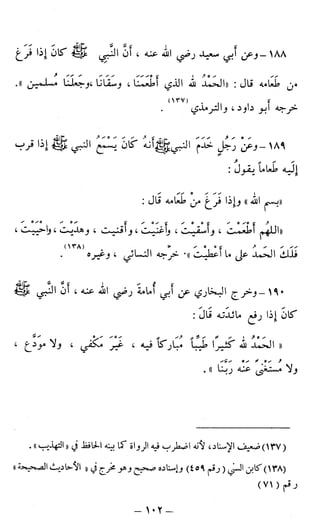 ١٨٨ – وعن أبي سعيد رضي الله عنه ، أنَّ النَّبي ﷺ كانَ إذا فَرَغَ
من طَعَامه قال : «الحَمْدُ لله الذي أطْعَمَنَا ، وسَقَانَا ،وجَعَلَنَا مُسلمين » .
خرجه أبو داود ، والترمذي (١٣٧) .
١٨٩ – وعَنْ رَجُلٍ خَدَمَ النبيﷺأنهُ كَانَ يَسْمَعُ النبي ﷺ إذا قرب
إليه طعاماً يقولُ :
«بسم الله » وإذا فَرَغَ منْ طَعَامه قَالَ :
«اللهُم أطْعَمْتَ ، وأسْقَيْتَ ، وأغْنَيْتَ ، وأقنيت ، وهدَيْتَ ،واحْيَيْتَ ،
فَلَكَ الحَمدُ على ما أعْطَيْتَ » . خرَّجه النسائي ، وغيره (١٣٨) .
١٩٠ – وخرج البخاري عن أبي أمامةَ رضي الله عنه ، أنَّ النَّبي ﷺ
كانَ إذا رفع مائدتَه قالَ :
« الحَمْدُ لله كَثيرًا طَيِّبًا مُبَاركاً فيه ، غَيْرَ مَكْفي ، ولا مودَّع ،
ولا مُسْتَغْنىً عَنْه رَبَّنَا » .
(١٣٧) ضعيف الإسناد، لأنه اضطرب فيه الرواة كما بينه الحافظ في «التهذيب» .
(١٣٨) كابن السني (رقم ٤٥٩) وإسناده صحيح وهو مخرج في « الأحاديث الصحيحة »
رقم (٧١)
– ١٠٢ –